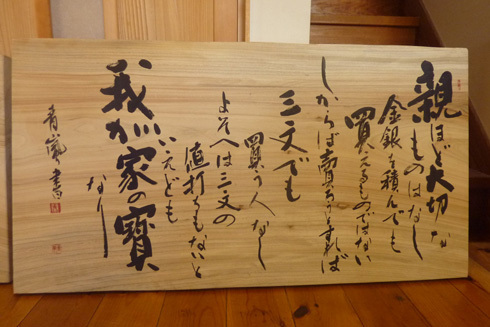 親ほど大切な
ものはなし
金銀を積んでも
買えるものではない
しからば賣ろうとすれば
三文でも
買う人なし
よそへは三文の
値打ちもないと
いえども
我が家の寶
なり
書